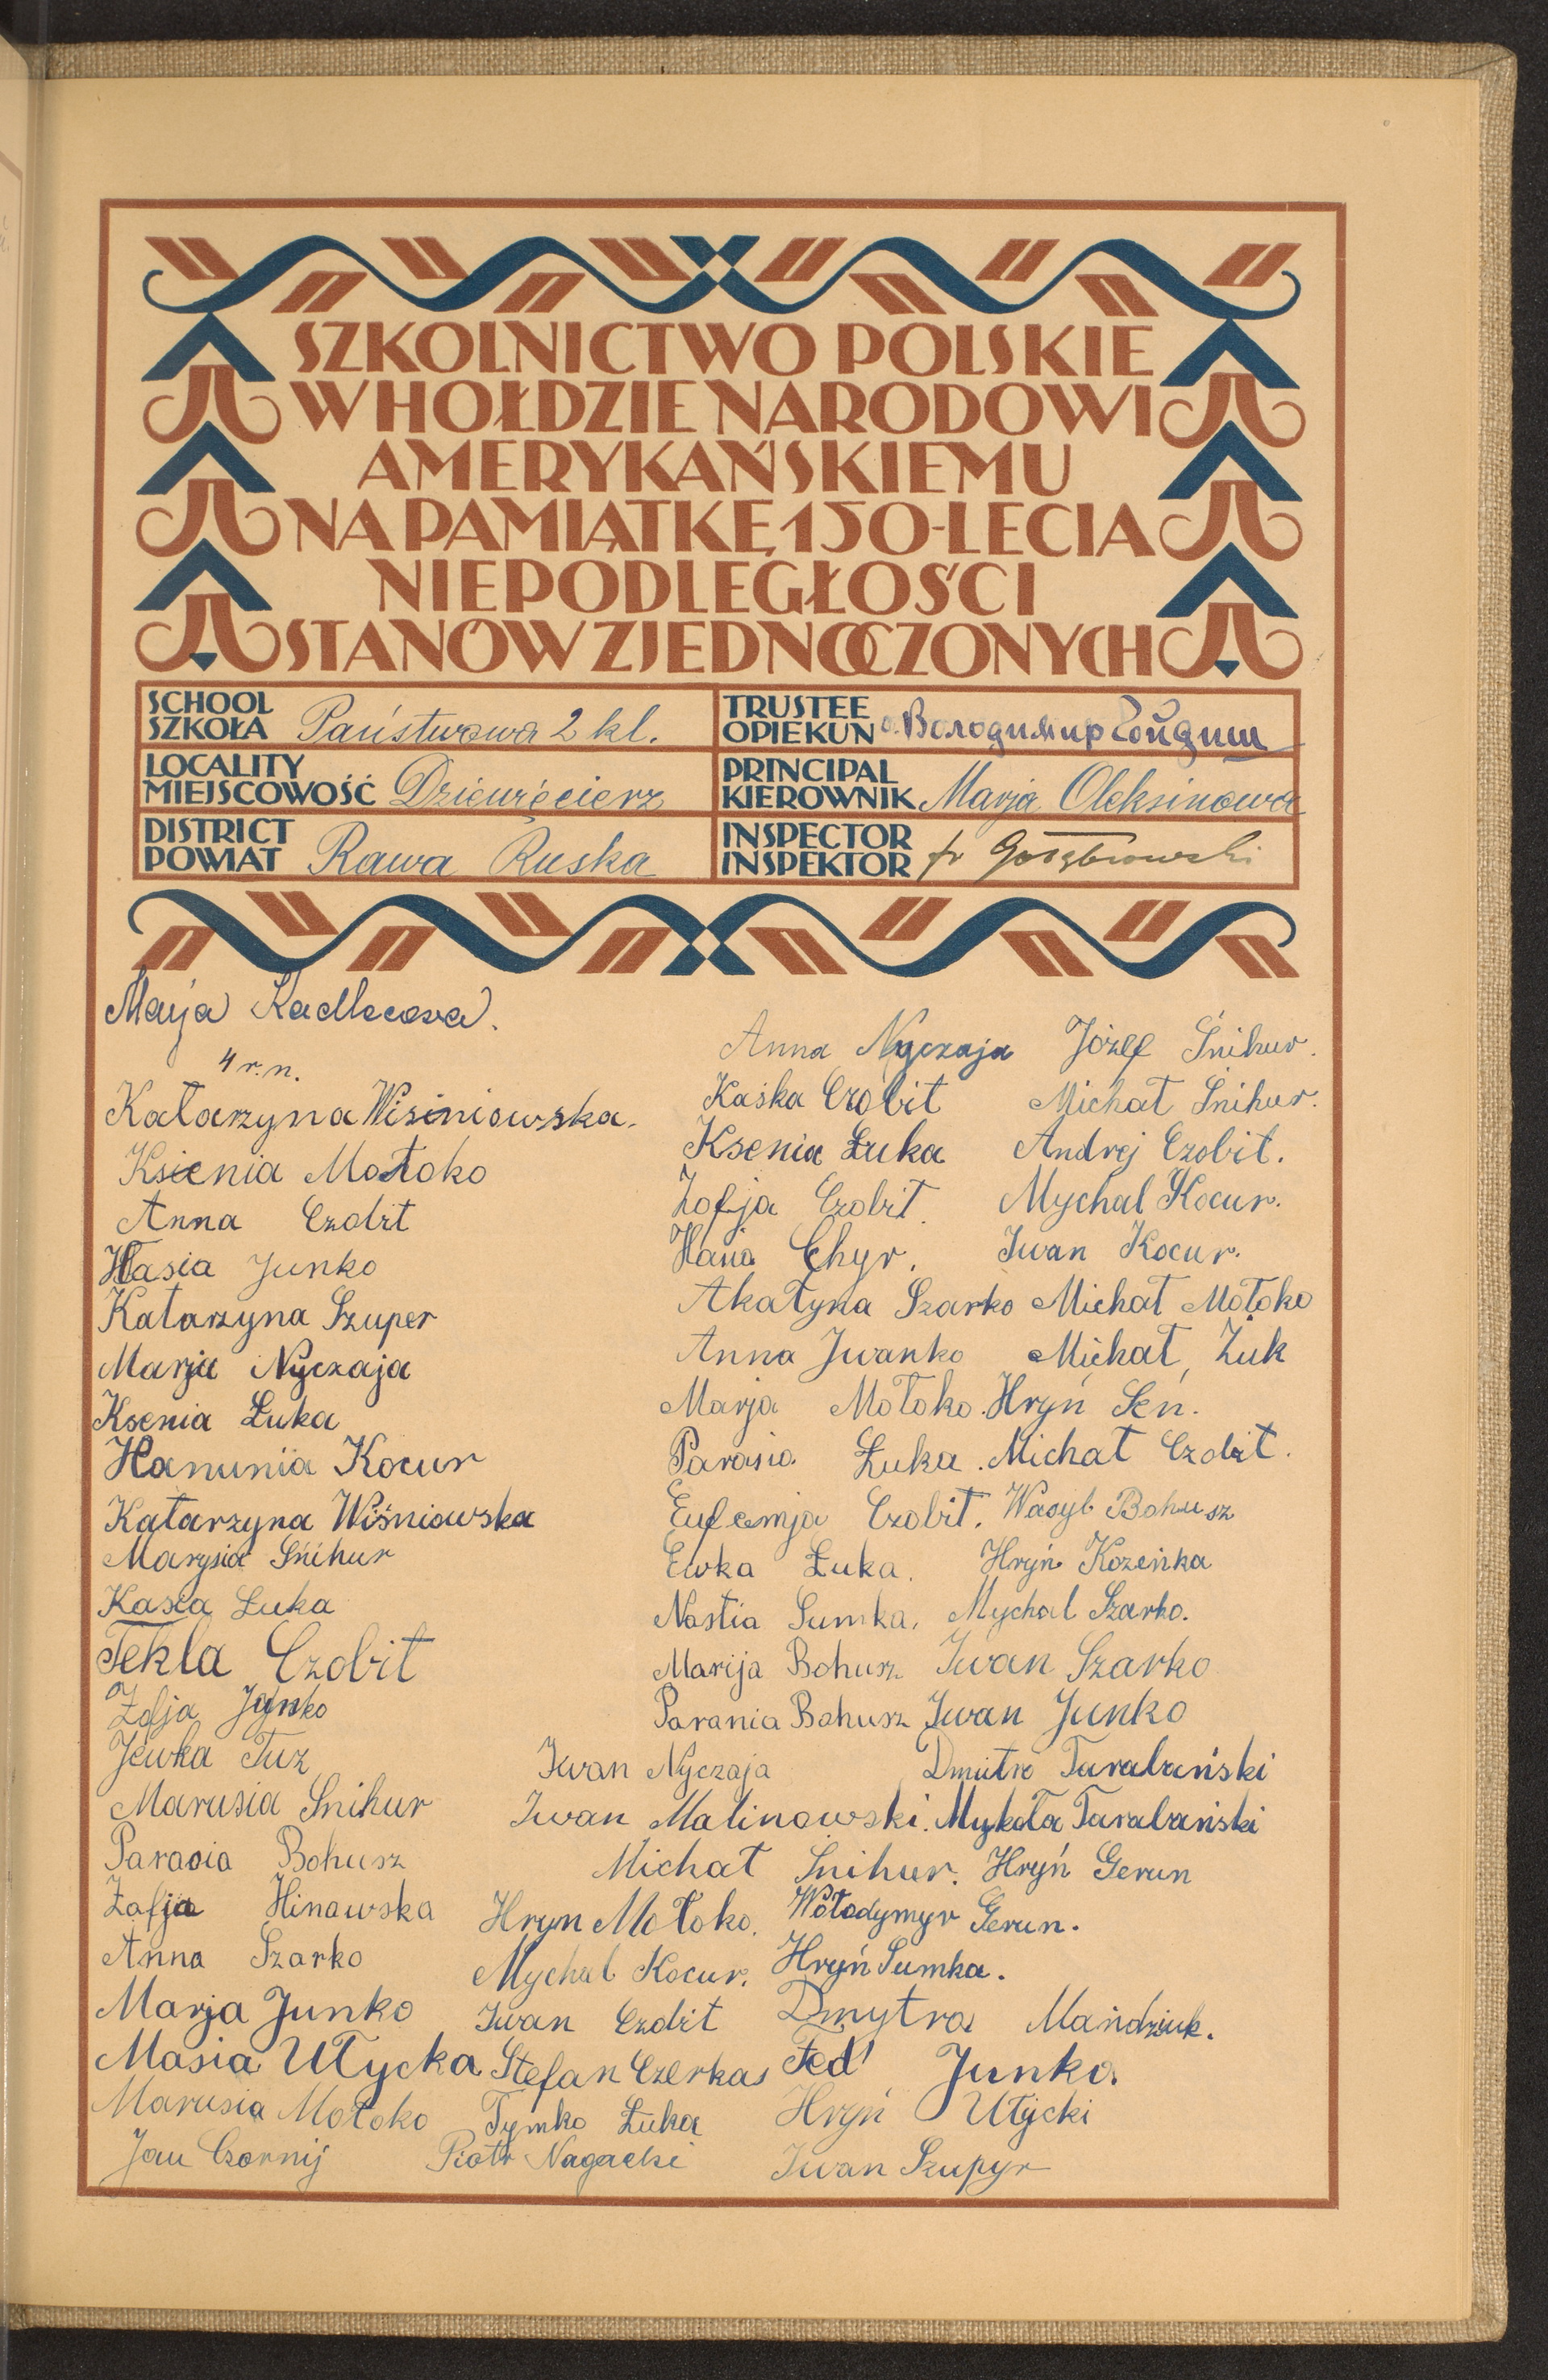 SZKOLNICTWO POLSKIE
W HOŁDZIE NARODOWI
AMERYKAŃSKIEMU
NA PAMIĄTKĘ 150-LECIA
NIEPODLEGŁOŚCI
STANÓW ZJEDNOCZONYCH
SCHOOL
SZKOŁA Państwowa 2 kl.
TRUSTEE
OPIEKUN о. Володимир
LOCALITY
MIEJSCOWOŚĆ Dziewięcierz
PRINCIPAL
KIEROWNIK Marja Oleksinowa
DISTRICT
POWIAT Rawa Ruska
INSPECTOR
INSPEKTOR Gołąbrowski
Marja Kadlecowa.
4 r. n.
Katarzyna Wisiniowska.
Ksienia Mołoko
Anna Czobit
Hasia Junko
Katarzyna Szuper
Marja Nyczaja
Ksenia Łuka
Hanunia Kocur
Katarzyna Wiśniowska
Marysia Śnihur
Kasia Łuka
Tekla Czobit
Zofja Junko
Jewka Tuz
Marusia Snihur
Parasia Bohusz
Zofja Hinawska
Anna Szarko
Marja Junko
Masia Ułycka
Marusia Mołoko
Jan Czornij
Anna Nyczaja
Kaśka Czobit
Ksenia Łuka
Zofja Czobit.
Hania Chyr.
Akatyna Szarko
Anna Iwanko
Marja Mołoko.
Parasia Łuka.
Eufemja Czobit.
Ewka Łuka.
Nastia Sumka.
Marija Bohusz
Parania Bohusz
Iwan Nyczaja
Iwan Malinowski.
Michał Snihur.
Hryn Mołoko.
Mychal Kocur.
Iwan Czobit
Stefan Czerkas
Tymko Łuka
Piotr Nagacki
Józef Śnihur.
Michał Śnihur.
Andrej Czobit.
Mychal Kocur.
Iwan Kocur.
Michał Mołoko
Michał Żuk
Hryń Seń.
Michał Czobit.
Wasyl Bohusz
Hryń Kozeńka
Mychal Szarko.
Iwan Szarko
Iwan Junko
Dmitro Tarabański
Mykoła Tarabański
Hryń Gerun
Wołodymyr Gerun.
Hryń Sumka.
Dmytro Mańdziuk.
Fed' Junko.
Hryń Ułycki
Iwan Szupyr